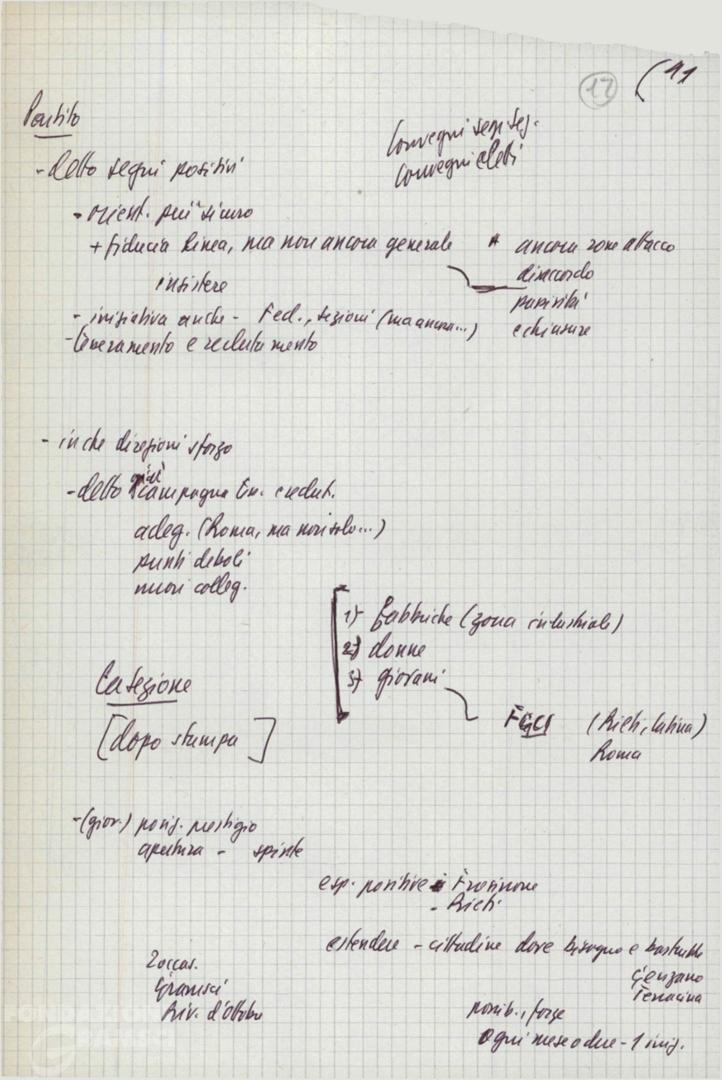 (41
17
Partito
Convegni segr. sez.
Convegni eletti
- detto segni positivi
- orient. più sicuro
+ fiducia linea, ma non ancora generale
* ancora zone attacco
insistere
disaccordo
passività
e chiusure
- iniziativa anche - Fed., sezioni (ma ancora...)
- tesseramento e reclutamento
- in che direzioni sforzo
più
- detto campagna reclut.
adeg. (Roma, ma non solo...)
punti deboli
nuovi colleg.
1) fabbriche (zona industriale)
2) donne
3) giovani
La sezione
FGCI (Rieti, Latina)
Roma
[dopo stampa]
- (giov.) posiz. prestigio
apertura - spinte
esp. positive Frosinone
- Rieti
estendere - cittadine dove bisogno e
Genzano
Terracina
2 occas.
Gramsci
Riv. d'Ottobre
possib., forze
Ogni mese o due - 1 iniz.